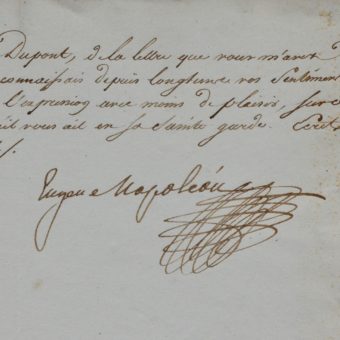 Dupont, de la lettre que vous m'avez
connaissais depuis longtems vos Sentimens
l'expression avec moins de plaisir, sur ce
qu'il vous ait en sa Sainte garde. Ecrit
Eugene Napoléon